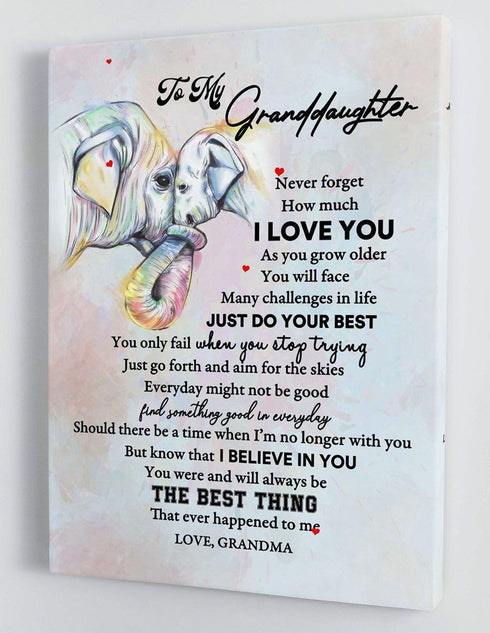 To My
Granddaughter
Never forget
How much
I LOVE YOU
As you grow older
You will face
Many challenges in life
JUST DO YOUR BEST
You only fail when you stop trying
Just go forth and aim for the skies
Everyday might not be good
find something good in everyday
Should there be a time when I'm no longer with you
But know that I BELIEVE IN YOU
You were and will always be
THE BEST THING
That ever happened to me
LOVE, GRANDMA